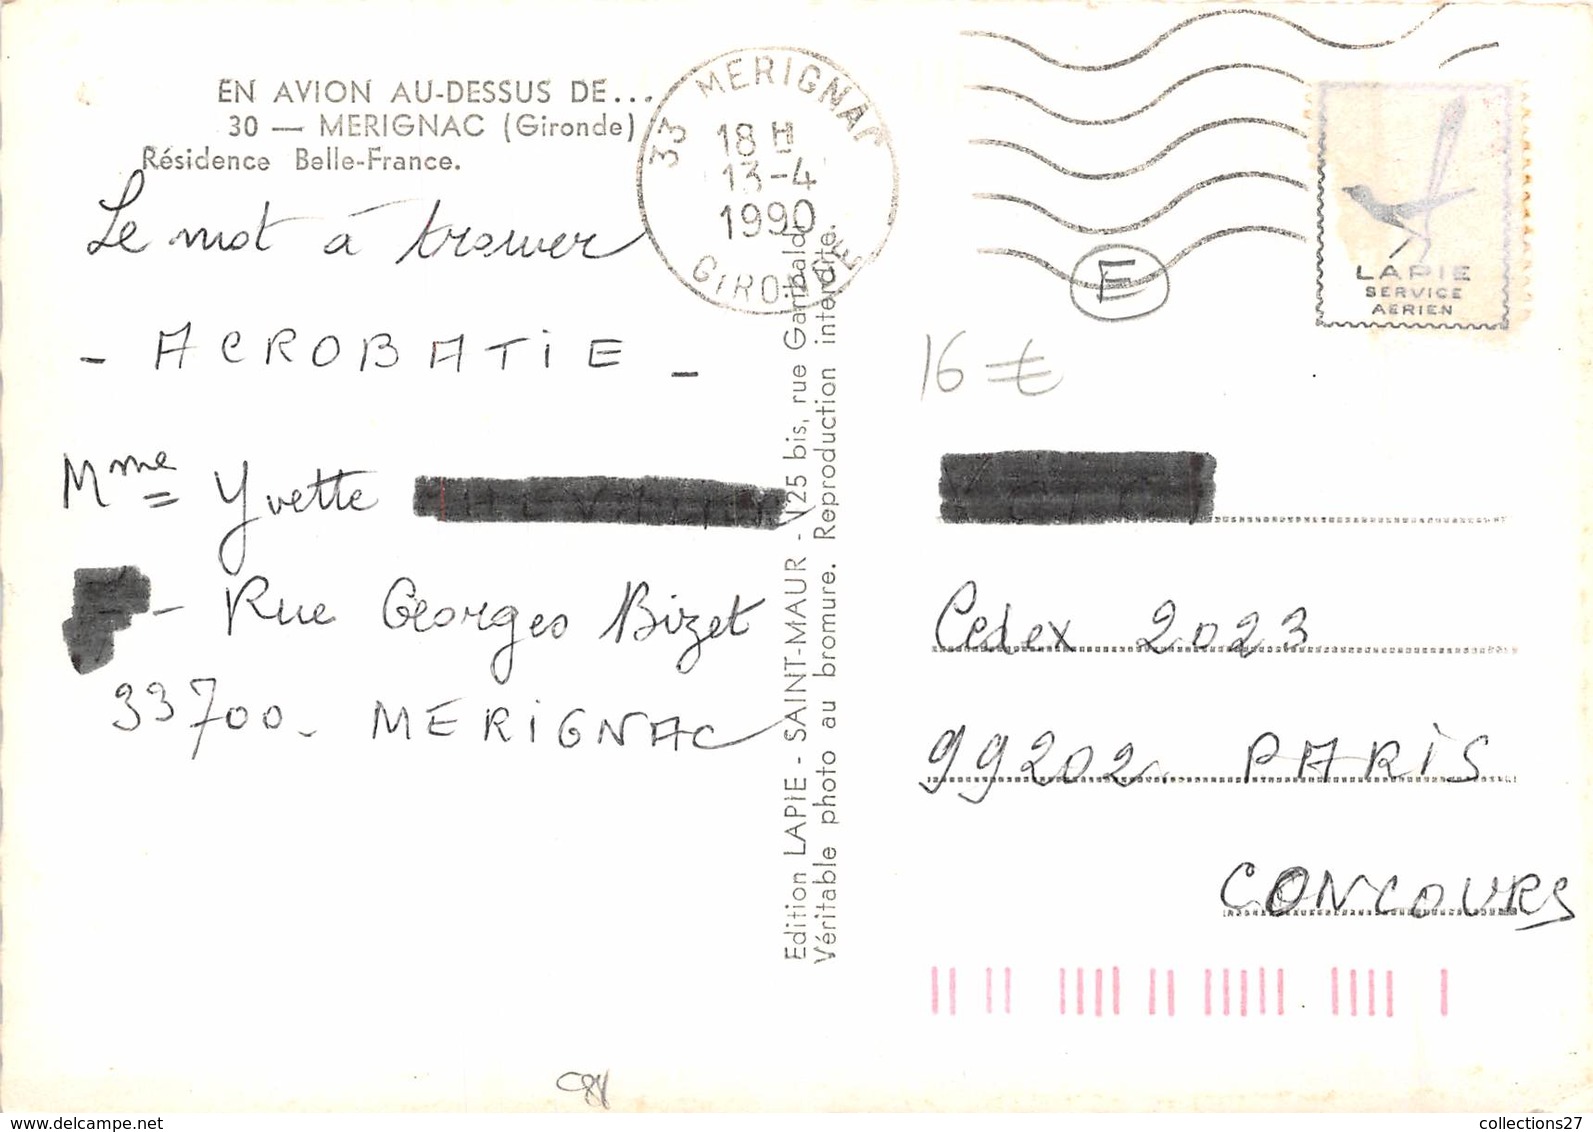 EN AVION AU-DESSUS DE...
30 — MERIGNAC (Gironde)
Résidence Belle-France.
Le mot à trouver
- ACROBATIE -
Mme Yvette
- Rue Georges Bizet
33700 - MERIGNAC
33 MERIGNAC
18 H
13-4
1990
GIRONDE
Edition LAPIE - SAINT-MAUR - 125 bis, rue Garibaldi
Véritable photo au bromure. Reproduction interdite.
E
LAPIE
SERVICE
AERIEN
16 €
Cedex 2023
99202. PARIS
CONCOURS
collections27